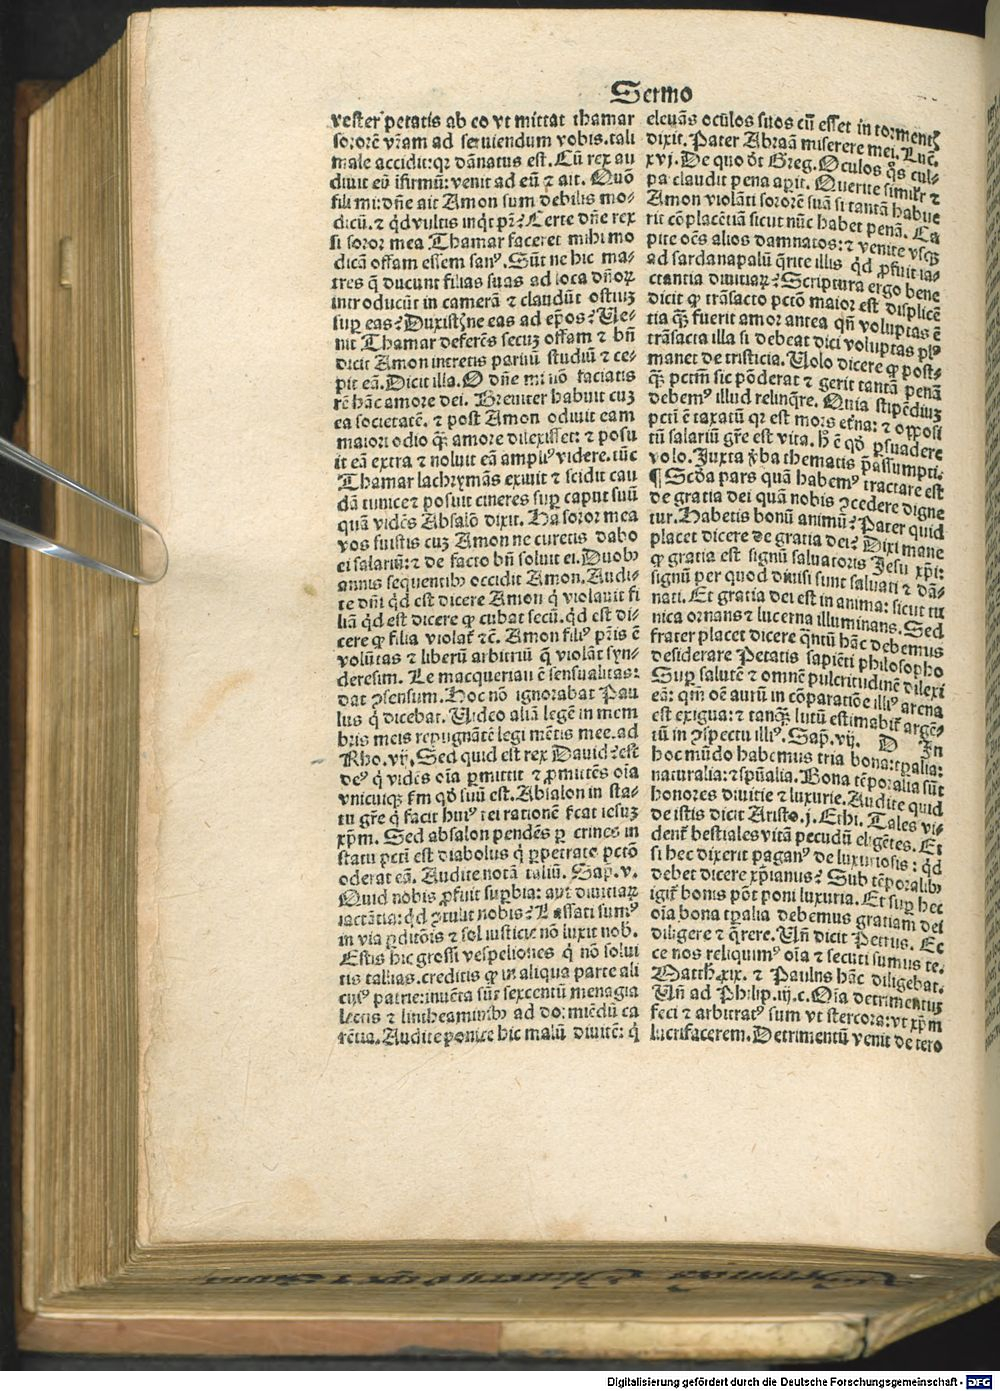 Sermo
vester petatis ab eo vt mittat thamar
sororē vr̄am ad seruiendum vobis. tali
male accidit: qr dānatus est. Cū rex au
diuit eū īfirmū: venit ad eū ⁊ ait. Quō
fili mi: dn̄e ait Amon sum debilis mo-
dicū. ⁊ qd vultis inqt pr̄? Certe dn̄e rex
si soror mea Thamar faceret mihi mo
dicā offam essem sanꝰ. Sūt ne hic ma-
tres q̄ ducunt filias suas ad loca dn̄oꝝ
introducūt in camerā ⁊ claudūt ostiuꝫ
suꝑ eas? Duxistꝭne eas ad ep̄os? Ve-
nit Thamar deferēs secuꝫ offam ⁊ bn̄
dicit Amon intretis paruū studiū ⁊ ce-
pit eā. Dicit illa. O dn̄e mi nō faciatis
rē hāc amore dei. Breuiter habuit cuꝫ
ea societatē. ⁊ post Amon odiuit eam
maiori odio q̄ꝫ amore dilexisset: ⁊ posu
it eā extra ⁊ noluit eā ampliꝰ videre. tūc
Thamar lachrymās exiuit ⁊ scidit cau
dā tunice ⁊ posuit cineres suꝑ caput suū
quā vidēs Absalō dixit. Ha soror mea
vos fuistis cuꝫ Amon ne curetis dabo
ei salariū: ⁊ de facto bn̄ soluit ei. Duobꝰ
annis sequentibꝰ occidit Amon. Audi-
te dn̄i qd est dicere Amon q̇ violauit fi
liā qd est dicere ꝙ cubat secū. qd est di-
cere ꝙ filia violat̄ ⁊c̄. Amon filiꝰ pr̄is ē
volūtas ⁊ liberū arbitriū q̄ violāt syn-
deresim. Le macqueriau ē sensualitas:
dat ꝯsensum. Hoc nō ignorabat Pau
lus q̇ dicebat. Video aliā legē in mem
bris meis repugnātē legi mētis mee. ad
Rho. vij. Sed quid est rex Dauid? est
deꝰ q̇ vidēs oīa ꝑmittit ⁊ ꝓmittēs oīa
vnicuiqꝫ ẜm qd̄ suū est. Absalon in sta-
tu gr̄e q̇ facit huiꝰ rei rationē ẜcat iesuꝫ
xp̄m. Sed absalon pendēs ꝑ crines in
statu pcti est diabolus q̇ ꝑpetrato pctō
oderat eā. Audite notā taliū. Sap. v.
Quid nobis ꝓfuit suꝑbia: aut diuitiaꝝ
iactātia: qd ꝯtulit nobis? Lassati sumꝰ
in via ꝑditōis ⁊ sol iusticie nō luxit nob.
Estis hic grossi vespeliones q̇ nō solui
tis tallias. creditis ꝙ in aliqua parte ali
cuiꝰ patrie: inuēta sūt sexcentū menagia
lectis ⁊ lintheaminibꝰ ad dormiēdū ca
rētia. Audite ponite hic malū diuitē: q̇
eleuās oculos suos cū esset in tormentꝭ
dixit. Pater Abraā miserere mei. Luc̄.
xvj. De quo dt̄ Greg. Oculos qs cul-
pa claudit pena aꝑit. Querite similr̄ ⁊
Amon violāti sororē suā si tantā habue
rit cōplacētiā sicut nūc habet penā. Ca
pite oēs alios damnatos: ⁊ venite vsqꝫ
ad sardanapalū q̄rite illis qd ꝓfuit ia-
ctantia diuitiaꝝ? Scriptura ergo bene
dicit ꝙ trāsacto pctō maior est displicē
tia q̄ꝫ fuerit amor antea qn̄ voluptas ē
trāsacta illa si debeat dici voluptas plꝰ
manet de tristicia. Uolo dicere ꝙ post-
q̄ꝫ pctm̄ sic pōderat ⁊ gerit tantā penā
debemꝰ illud relinq̄re. Quia stipēdiuꝫ
pcti ē taxatū qr est mors etn̄a: ⁊ opposi
tū salariū gr̄e est vita. hꝭ ē qd̄ ꝑsuadere
volo. Juxta v̄ba thematis p̄assumpti.
¶ Scd̄a pars quā habemꝰ tractare est
de gratia dei quā nobis ꝯcedere digne
tur. Habetis bonū animū? Pater quid
placet dicere de gratia dei? Dixi mane
ꝙ gratia est signū saluatoris Jesu xp̄i:
signū per quod diuisi sunt saluati ⁊ dā-
nati. Et gratia dei est in anima: sicut tu
nica ornans ⁊ lucerna illuminans. Sed
frater placet dicere qntū hāc debemus
desiderare Petatis sapiēti philosopho
Suꝑ salutē ⁊ omnē pulcritudinē dilexi
eā: qm̄ oē aurū in cōparatiōe illiꝰ arena
est exigua: ⁊ tanqꝫ lutū estimabit̄ argē-
tū in ꝯspectu illiꝰ. Sap. vij. D In
hoc mūdo habemus tria bona: tꝑalia:
naturalia: ⁊ spūalia. Bona tēꝑalia sūt
honores diuitie ⁊ luxurie. Audite quid
de istis dicit Aristo. j. Ethi. Tales vi-
dent̄ bestiales vitā pecudū eligētes. Et
si hec dixerit paganꝰ de luxuriosis: qd
debet dicere xp̄ianus? Sub tēꝑalibꝰ
igit̄ bonis pōt poni luxuria. Et suꝑ hec
oīa bona tꝑalia debemus gratiam dei
diligere ⁊ q̄rere. Un̄ dicit Petrus. Ec
ce nos reliquimꝰ oīa ⁊ secuti sumus te.
Matth. xix. ⁊ Paulus hāc diligebat.
Un̄ ad Philip. iij. c. Oīa detrimentuꝫ
feci ⁊ arbitratꝰ sum vt stercora: vt xp̄m
lucrifacerem. Detrimentū venit de tero
Digitalisierung gefördert durch die Deutsche Forschungsgemeinschaft - DFG